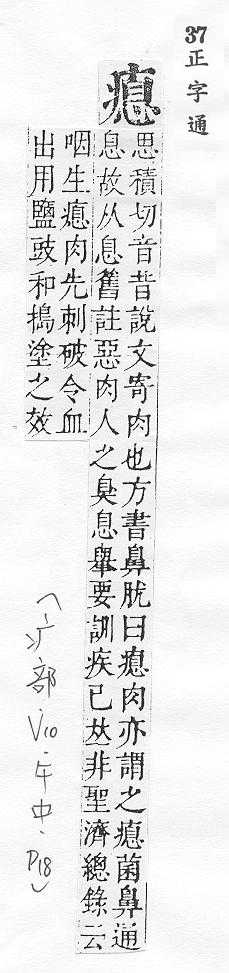 37正字通
瘜
思積切音昔說文寄肉也方書鼻肬曰瘜肉亦謂之瘜菌鼻通
息故从息舊註惡肉人之臭息舉要訓疾已𠀤非聖濟總錄云
咽生瘜肉先刺破令血
出用鹽豉和搗塗之效
(疒部.V10.午中.P18)